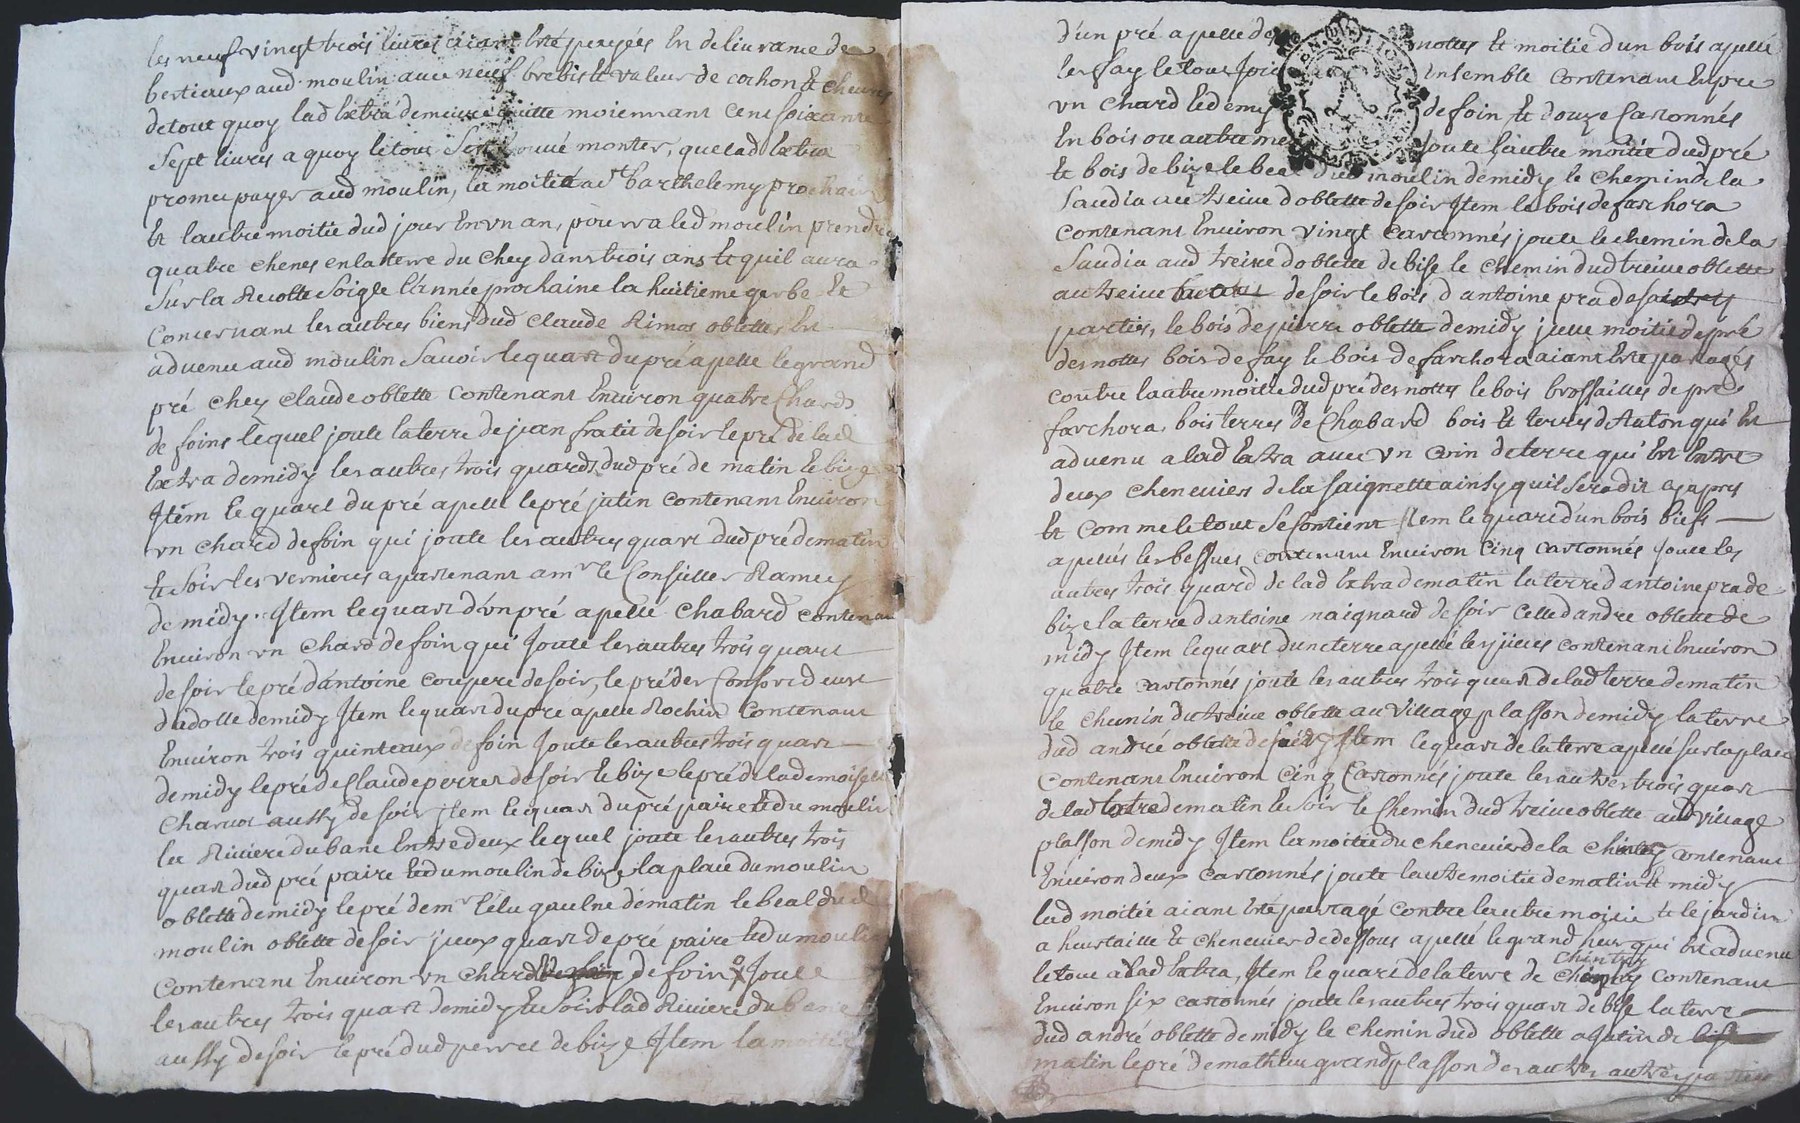 les neuf vingt trois livres aiant été perçées en delivrance de
bestiaux aud moulin avec neuf brebis et valeur de cochon et chevres
de tout quoy lad extra demeure quitte moiennant cent soixante
sept livres a quoy le tout sest trouvé monter, que lad extra
promet payer aud moulin, la moitié a st barthelemy prochain
et lautre moitié dud jour en un an, pourra led moulin prendre
quatre chenes en la terre du chey dans trois ans et quil aura
sur la recolte soigle l'année prochaine la huitieme gerbe et
concernant les autres biens dud claude Rimos oblette est
advenu aud moulin savoir le quart du pré apellé le grand
pré chez claude oblette contenant environ quatre chards
de foins lequel joute la terre de jean fratie de soir le pré de lad
extra de midy les autres trois quards dud pré de matin et bize
Item le quart du pré apellé le pré jatin contenant environ
un chard de foin qui joute les autres quart dud pré de matin
et soir les vernieres apartenant a mr le Consiller Ramey
de midy. Item le quart d'un pré apellé chabard contenant
environ un chard de foin qui joute les autres trois quart
de soir le pré dantoine coupere de soir, le pré des
dudolle de midy Item le quart du pré apellé Rochin contenant
environ trois quinteaux de foin joute les autres trois quart
de midy le pré de Claude perret de soir et bize le pré de lademoiselle
charuot aussy de soir Item le quart du pré paire et du moulin
la Riviere du bane entre deux lequel joute les autres trois
quart dud pré paire et du moulin de bize la place du moulin
oblette de midy le pré de mr l'élu gaulne de matin le beal dud
moulin oblette de soir yceux quart de pré paire et du moulin
contenant environ un chard de foin joute
les autres trois quart de midy et soir lad Riviere du bane
aussy de soir le pré dud perret de bize Item la moitié
d'un pré apellé des nottes et moitié d'un bois apellé
les fay le tout joi ensemble contenant en pré
un chard et demy de foin et douze cartonnés
en bois ou autreme joute lautre moitié dud pré
et bois de bize le beal dud moulin de midy le chemin de la
Saudia au treive doblette de soir Item le bois de farchora
contenant environ vingt cartonnés joute le chemin de la
Saudia aud treive doblette de bise le chemin dud treive oblette
au treive de soir le bois d antoine prades
parties, le bois de pierre oblette de midy jceue moitié de pré
des nottes bois de fay le bois de farchora aiant été partagés
contre lautre moitié dud pré des nottes le bois brossailles de pré
farchora, bois terres de Chabard bois et terres d Auton qui est
advenu a lad extra avec un coin de terre qui est entre
deux cheneviers de la saignette ainsy quil sera dit cy apres
et comme le tout se contient Item le quart d'un bois biefs
apellés les besses contenant environ cinq cartonnés joute les
autres trois quard de lad extra de matin la terre dantoine prade
bize la terre dantoine maignard de soir celle dandre oblette de
midy Item le quart d'une terre apellé les jieres contenant environ
quatre cartonnés joute les autres trois quart de lad terre de matin
le chemin du treive oblette au village plasson de midy la terre
dud andré oblette de Item le quart de la terre apellé sur la place
contenant environ cinq Cartonnés joute les autres trois quart
de lad extra de matin et soir le chemin dud treive oblette aud village
plasson de midy Item la moitié du chenevier de la contenant
environ deux cartonnés joute lautre moitié de matin et midy
lad moitié aiant été partagé contre lautre moitié et le jardin
a heurtaille et chenevier de dessous apellé le grand heur qui est advenu
le tout a lad extra, Item le quart de la terre de chintray contenant
environ six cartonnés joute les autres trois quart de bise la terre
dud andré oblette de midy le chemin dud oblette a Jatin de
matin le pré de mathieu grand plasson des autres autres parties